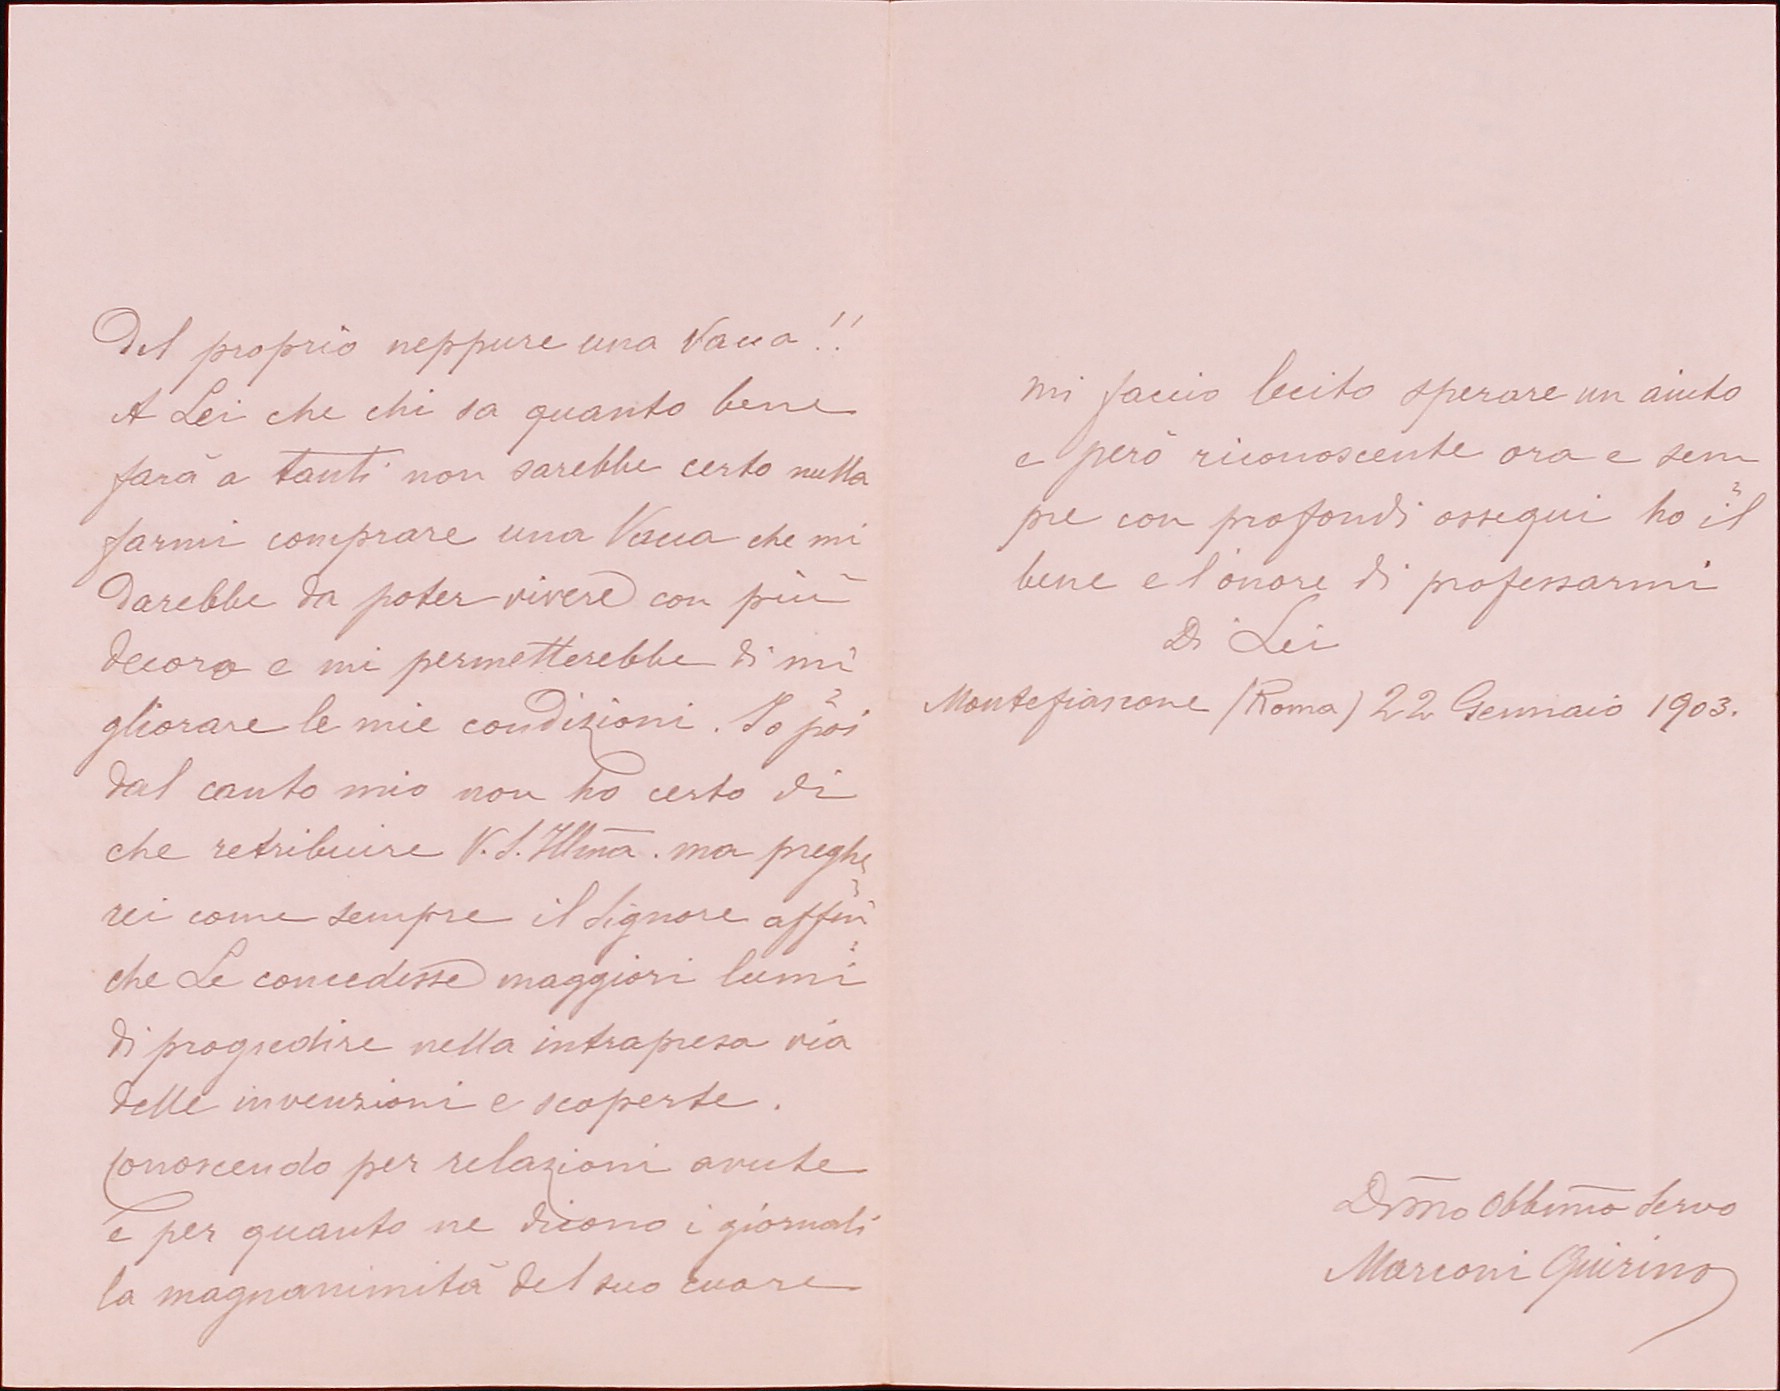 Del proprio neppure una Vacca!!
A Lei che chi sa quanto bene
farà a tanti non sarebbe certo nulla
farmi comprare una Vacca che mi
darebbe da poter vivere con più
decoro e mi permetterebbe di mi
gliorare le mie condizioni. Io poi
dal canto mio non ho certo di
che retribuire V. S. Illma. ma preghe
rei come sempre il Signore affin
che Le concedesse maggiori lumi
di progredire nella intrapresa via
delle invenzioni e scoperte.
Conoscendo per relazioni avute
e per quanto ne dicono i giornali
la magnanimità del suo cuore
mi faccio lecito sperare un aiuto
e però riconoscente ora e sem
pre con profondi ossequi ho il
bene e l'onore di professarmi
Di Lei
Montefiascone (Roma) 22 Gennaio 1903.
Dvmo Obbmo Servo
Marconi Quirino